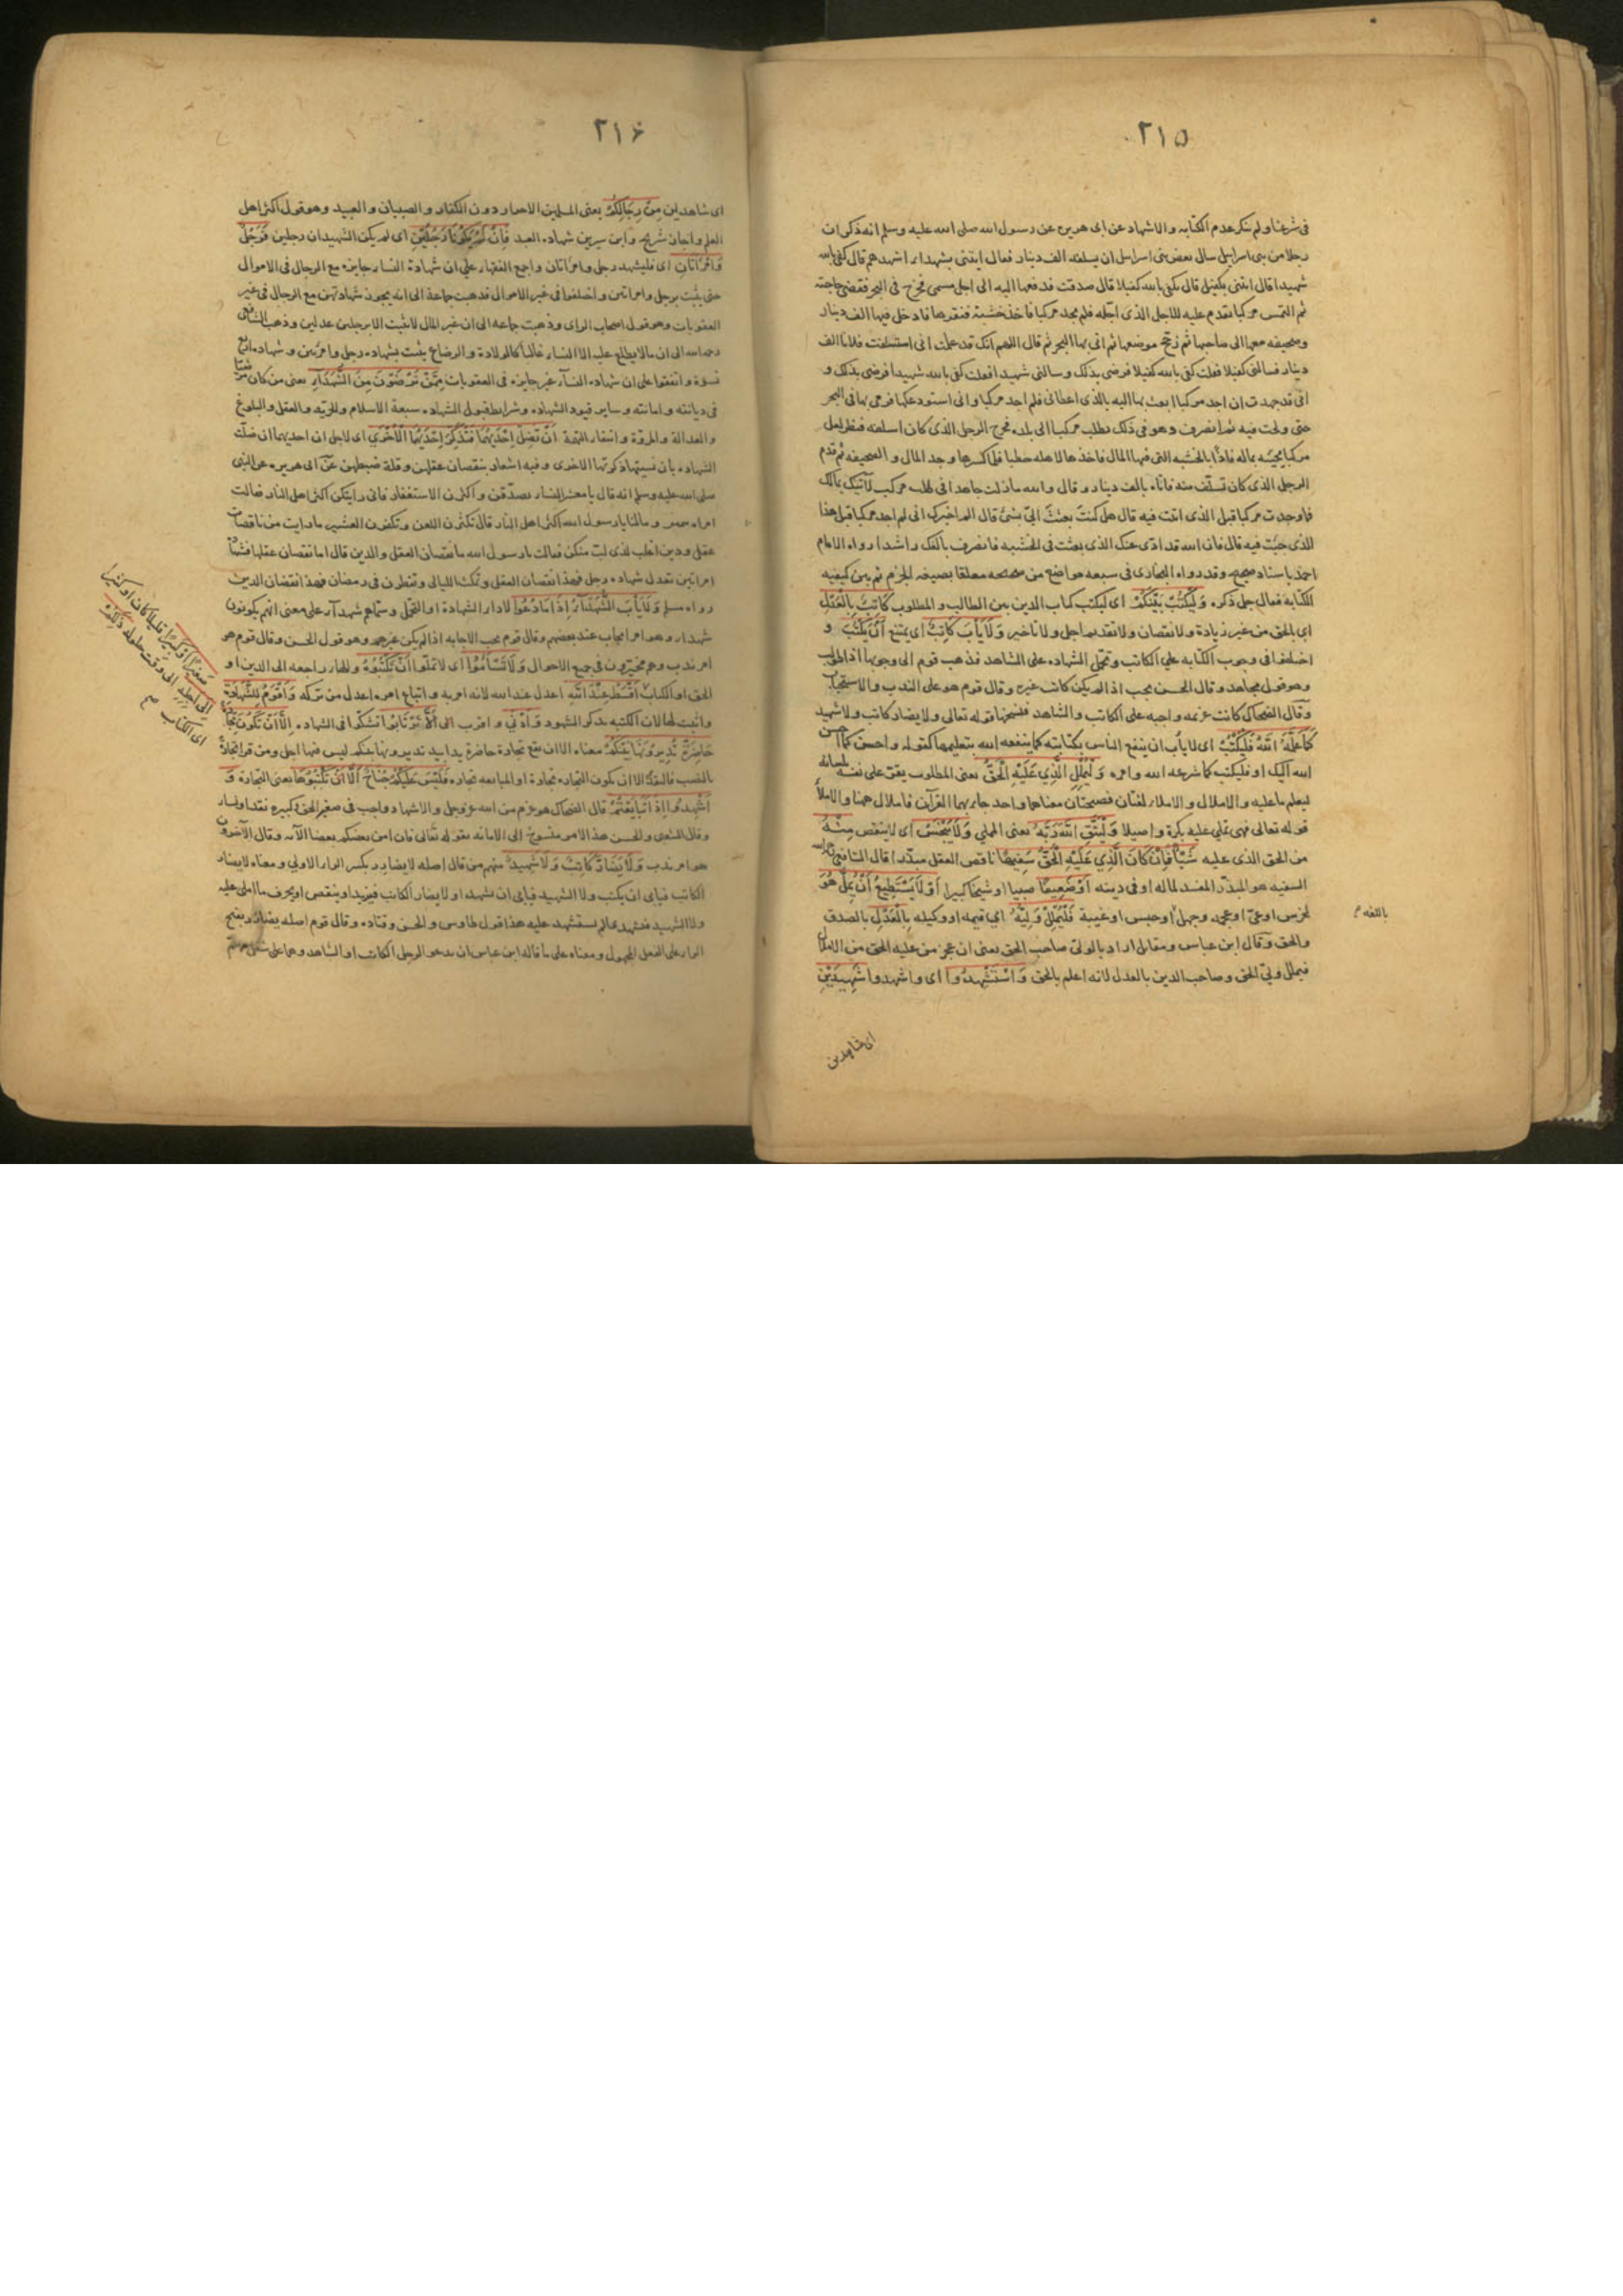 ٢١٥
فى شرعنا ولم ينكر عدم الكتابه والاشهاد عن ابى هريره عن رسول الله صلى الله عليه وسلم انه ذكر ان
رجلا من بنى اسراييل سال بعض بنى اسراييل ان يسلفه الف دينار فقال ايتنى بشهدار اشهدهم قال كفى بالله
شهيدا قال ايتنى بكفيل قال كفى بالله كفيلا قال صدقت فدفعها اليه الى اجل مسمى فخرج فى البحر فقضى حاجته
ثم التمس مركبا يقدم عليه للاجل الذى اجّله فلم يجد مركبا فاخذ خشبة فنقرها فادخل فيها الف دينار
وصحيفه معها الى صاحبها ثم زجّج موضعها ثم اتى بها البحر ثم قال اللهم انك قد علمت انى استسلفت فلانا الف
دينار فسالنى كفيلا فقلت كفى بالله كفيلا فرضى بذلك وسالنى شهيدا فقلت كفى بالله شهيدا فرضى بذلك و
انى قد جهدت ان اجد مركبا ابعث بها اليه بالذى اعطانى فلم اجد مركبا وانى استودعكها فرمى بها فى البحر
حتى ولجت فيه ثم انصرف وهو فى ذلك يطلب مركبا الى بلده فخرج الرجل الذى كان اسلفه فنظر لعل
مركبا يجيئه بماله فاذا بالخشبه التى فيها المال فاخذها لاهله حطبا فلما كسرها وجد المال و الصحيفه ثم قدم
الرجل الذى كان تسلّف منه فاتاه بالف دينار وقال والله ما زلت جاهدا فى طلب مركب لآتيك بمالك
فما وجدت مركبا قبل الذى اتيت فيه قال هل كنت بعثت الىّ بشئ قال الم اخبرك انى لم اجد مركبا قبل هذا
الذى جئت فيه قال فان الله قد ادّى عنك الذى بعثت فى الخشبه فانصرف بالفك راشدا رواه الامام
احمد باسناد صحيح وقد رواه البخارى فى سبعه مواضع من صحيحه معلقا بصيغه الجزم ثم بين كيفيه
الكتابه فقال جل ذكره وَلْيَكْتُبْ بَيْنَكُمْ اى ليكتب كتاب الدين بين الطالب والمطلوب كَاتِبٌ بِالْعَدْلِ
اى بالحق من غير زيادة ولا نقصان ولا تقديم اجل ولا تاخير وَلَا يَأْبَ كَاتِبٌ اى يمتنع اَنْ يَكْتُبَ و
اختلفوا فى وجوب الكتابه على الكاتب وتحمّل الشهاده على الشاهد فذهب قوم الى وجوبها اذا طولب
وهو قول مجاهد وقال الحسن يجب اذا لم يكن كاتب غيره وقال قوم هو على الندب والاستحباب
وقال الضحاك كانت عزيمه واجبه على الكاتب والشاهد فنسخها قوله تعالى ولا يضار كاتب ولا شهيد
كَمَا عَلَّمَهُ اللَّهُ فَلْيَكْتُبْ اى لا ياب ان ينفع الناس بكتابته كما ينفعه الله بتعليمها كقوله واحسن كما احسن
الله اليك او فليكتب كما شرعه الله وامره وَلْيُمْلِلِ الَّذِي عَلَيْهِ الْحَقُّ يعنى المطلوب يقرّ على نفسه بلسانه
ليعلم ما عليه والاملال والاملار لغتان فصيحتان معناهما واحد جاء بهما القرآن فالاملال هنا والاملا
قوله تعالى فهى تملى عليه بكرة واصيلا وَلْيَتَّقِ اللَّهَ رَبَّهُ يعنى المملى وَلَا يَبْخَسْ اى لا ينقص مِنْهُ
من الحق الذى عليه شَيْئًا فَاِنْ كَانَ الَّذِي عَلَيْهِ الْحَقُّ سَفِيهًا ناقص العقل مبذّرا قال الشافعى رحمه الله
السفيه هو المبذّر المفسد لماله او فى دينه اَوْ ضَعِيفًا صبيا او شيخا كبيرا اَوْ لَا يَسْتَطِيعُ اَنْ يُمِلَّ هُوَ
لخرس او عىّ او عجمه وجهل او حبس او غيبة فَلْيُمْلِلْ وَلِيُّهُ اى قيمه او وكيله بِالْعَدْلِ بالصدق
باللغه
والحق وقال ابن عباس ومقاتل اراد بالولىّ صاحب الحق يعنى ان عجز من عليه الحق من الاملال
فيملل ولىّ الحق وصاحب الدين بالعدل لانه اعلم بالحق وَاسْتَشْهِدُوا اى واشهدوا شَهِيدَيْنِ
اى شاهدين
٢١۶
اى شاهدين مِنْ رِجَالِكُمْ يعنى المسلمين الاحرار دون الكفار والصبيان والعبيد وهو قول اكثر اهل
العلم واجاز شريح وابن سيرين شهاده العبد فَاِنْ لَمْ يَكُونَا رَجُلَيْنِ اى لم يكن الشهيدان رجلين فَرَجُلٌ
وَامْرَأَتَانِ اى فليشهد رجل وامراتان واجمع الفقهار على ان شهادة النسار جايزه مع الرجال فى الاموال
حتى يثبت برجل وامراتين واختلفوا فى غير الاموال فذهبت جماعة الى انه يجوز شهادتهن مع الرجال فى غير
العقوبات وهو قول اصحاب الراى وذهبت جماعه الى ان غير المال لا يثبت الا برجلين عدلين وذهب الشافعى
رحمه الله الى ان ما لا يطلع عليه الا النسار غالبا كالولادة والرضاع يثبت بشهاده رجل وامرأتين وشهاده اربع
نسوة واتفقوا على ان شهاده النسآر غير جايزه فى العقوبات مِمَّنْ تَرْضَوْنَ مِنَ الشُّهَدَآءِ يعنى من كان مرضيّا
فى ديانته وامانته وساير قيود الشهاده وشرايط قبول الشهاده سبعة الاسلام والحريّه والعقل والبلوغ
والعدالة والمروّة وانتفار التهمة اَنْ تَضِلَّ اِحْدَيهُمَا فَتُذَكِّرَ اِحْدَيهُمَا الْاُخْرَى اى لاجل ان احديهما ان ضلّت
الشهاده بان نسيتها ذكرتها الاخرى وفيه اشعار بنقصان عقلهن وقلة ضبطهن عن ابى هريره عن النبى
صلى الله عليه وسلم انه قال يا معشر النسار تصدّقن واكثرن الاستغفار فانى رايتكن اكثر اهل النار فقالت
امراه منهن وما لنا يا رسول الله اكثر اهل النار قال تكثرن اللعن وتكفرن العشير ما رايت من ناقصات
عقل ودين اغلب لذى لبّ منكن قالت يا رسول الله ما نقصان العقل والدين قال اما نقصان عقلها فشهادة
امراتين تعدل شهاده رجل فهذا نقصان العقل وتمكث الليالى وتفطرن فى رمضان فهذا نقصان الدين
رواه مسلم وَلَا يَأْبَ الشُّهَدَآءُ اِذَا مَا دُعُوا لادار الشهادة او التحمّل وسمّاهم شهدآر على معنى انهم يكونون
شهدار وهو امر ايجاب عند بعضهم وقال قوم يجب الاجابه اذا لم يكن غيرهم وهو قول الحسن وقال قوم هو
امر ندب وهم مخيّرون فى جميع الاحوال وَلَا تَسْأَمُوا اى لا تملّوا اَنْ تَكْتُبُوهُ والهار راجعه الى الدين او
صَغِيرًا اَوْ كَبِيرًا قليلا كان او كثيرا
اِلَى اَجَلِهِ الى وقت حلوله ذَلِكُمْ
اى الكتاب
الحق او الكتاب اَقْسَطُ عِنْدَ اللَّهِ اعدل عند الله لانه امر به واتباع امره اعدل من تركه وَاَقْوَمُ لِلشَّهَادَةِ
واثبت لها لان الكتبه يذكر الشهود وَاَدْنَى واقرب الى اَلَّا تَرْتَابُوا تشكّوا فى الشهاده اِلَّا اَنْ تَكُونَ تِجَارَةً
حَاضِرَةً تُدِيرُونَهَا بَيْنَكُمْ معناه الا ان تقع تجارة حاضرة يدا بيد تديرونها بينكم ليس فيها اجل ومن قرا تجارةً
بالنصب فالتقدير الا ان يكون التجاره تجارة او المبايعه تجاره فَلَيْسَ عَلَيْكُمْ جُنَاحٌ اَلَّا تَكْتُبُوهَا يعنى التجارة وَ
اَشْهِدُوا اِذَا تَبَايَعْتُمْ قال الضحاك هو عزم من الله عز وجل والاشهاد واجب فى صغير الحق وكبيره نقدا ونسار
وقال الشعبى والحسن هذا الامر منسوخ الى الامانه بقوله تعالى فان امن بعضكم بعضا الآيه وقال الآخرون
هو امر ندب وَلَا يُضَارَّ كَاتِبٌ وَلَا شَهِيدٌ منهم من قال اصله لا يضارِر بكسر الرار الاولى ومعناه لا يضار
الكاتب فيابى ان يكتب ولا الشهيد فيابى ان يشهد او لا يضار الكاتب فيزيد او ينقص او يحرف ما املى عليه
ولا الشهيد فيشهد بما لم يستشهد عليه هذا قول طاوس والحسن وقتاده وقال قوم اصله يضارَر بفتح
الرار على الفعل المجهول ومعناه على ما قاله ابن عباس ان يدعو الرجل الكاتب او الشاهد وهما على شغل مهمّ